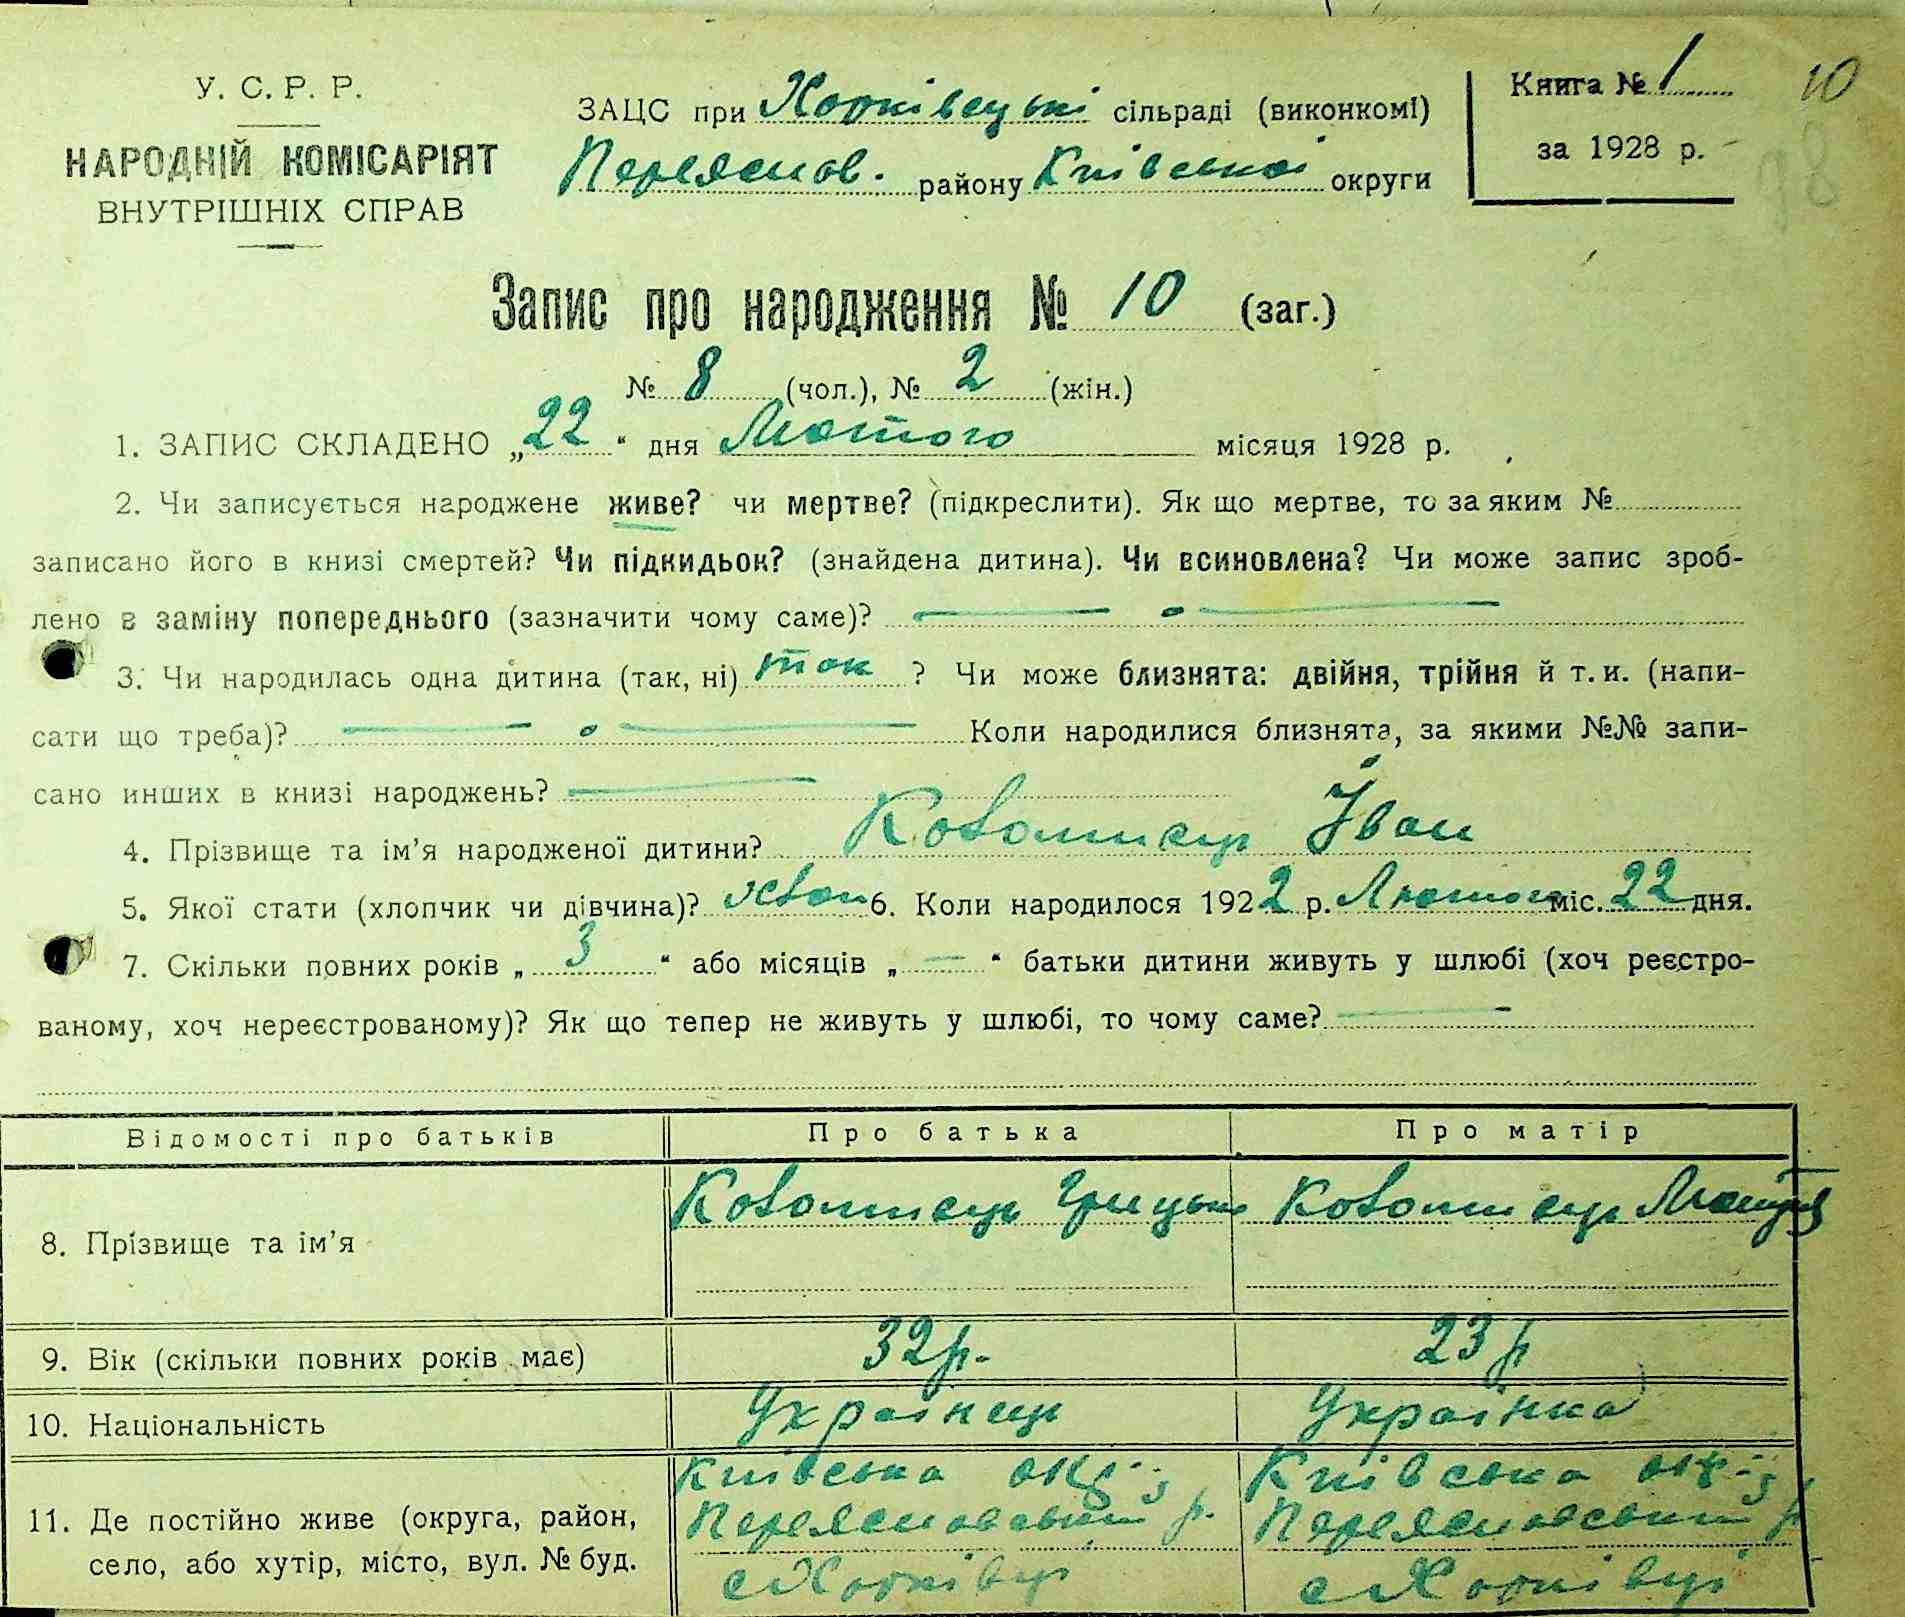 У. С. Р. Р.
НАРОДНІЙ КОМІСАРІЯТ
ВНУТРІШНІХ СПРАВ
ЗАЦС при Хоцківецькі сільраді (виконкомі)
Переяслов. району Київської округи
Книга № 1
за 1928 р.
10
Запис про народження № 10 (заг.)
№ 8 (чол.), № 2 (жін.)
1. ЗАПИС СКЛАДЕНО „22“ дня Лютого місяця 1928 р.
2. Чи записується народжене живе? чи мертве? (підкреслити). Як що мертве, то за яким №
записано його в книзі смертей? Чи підкидьок? (знайдена дитина). Чи всиновлена? Чи може запис зроб-
лено в заміну попереднього (зазначити чому саме)? —
3. Чи народилась одна дитина (так, ні) так ? Чи може близнята: двійня, трійня й т. и. (напи-
сати що треба)? — Коли народилися близнята, за якими №№ запи-
сано инших в книзі народжень? —
4. Прізвище та ім’я народженої дитини? Коломиець Іван
5. Якої стати (хлопчик чи дівчина)? 6. Коли народилося 1922 р. Лютого міс. 22 дня.
7. Скільки повних років „ 3 “ або місяців „ — “ батьки дитини живуть у шлюбі (хоч реєстро-
ваному, хоч нереєстрованому)? Як що тепер не живуть у шлюбі, то чому саме? —
Відомості про батьків Про батька Про матір
8. Прізвище та ім’я Коломиець Грицько Коломиець
9. Вік (скільки повних років має) 32 р. 23 р
10. Національність Українець Українка
11. Де постійно живе (округа, район,
село, або хутір, місто, вул. № буд.
Київська окр.; Переясловський р.
с Хоцківці
Київська окр.; Переясловський р
с Хоцківці